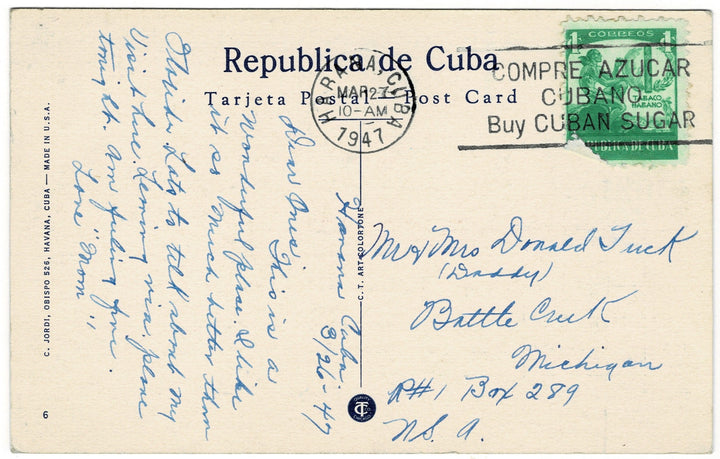 Republica de Cuba
Tarjeta Postal Post Card
HABANA, CUBA
MAR 27
10-AM
1947
COMPRE AZUCAR
CUBANO
Buy CUBAN SUGAR
CORREOS
TABACO
HABANO
REPUBLICA DE CUBA
Havana Cuba.
3/26-47
Dear Ones This is a
Wonderful place. I like
it so Much better than
Florida. Lots to tell about my
Visit here. Leaving via. plane
tonight. Am feeling fine.
Love "Mom"
Mr & Mrs Donald Tuck
(Daddy)
Battle Creek
Michigan
R#1 Box 289
U.S.A.
C. JORDI, OBISPO 526, HAVANA, CUBA — MADE IN U.S.A.
C. T. ART COLORTONE
6